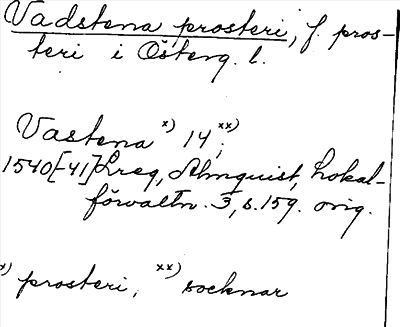 Vadstena prosteri, f. pros-
teri i Österg. l.
Vastena x) 14 xx);
1540[-41] Lreg, Almquist, Lokal-
förvaltn. 3, s. 159. orig.
x) prosteri, xx) socknar